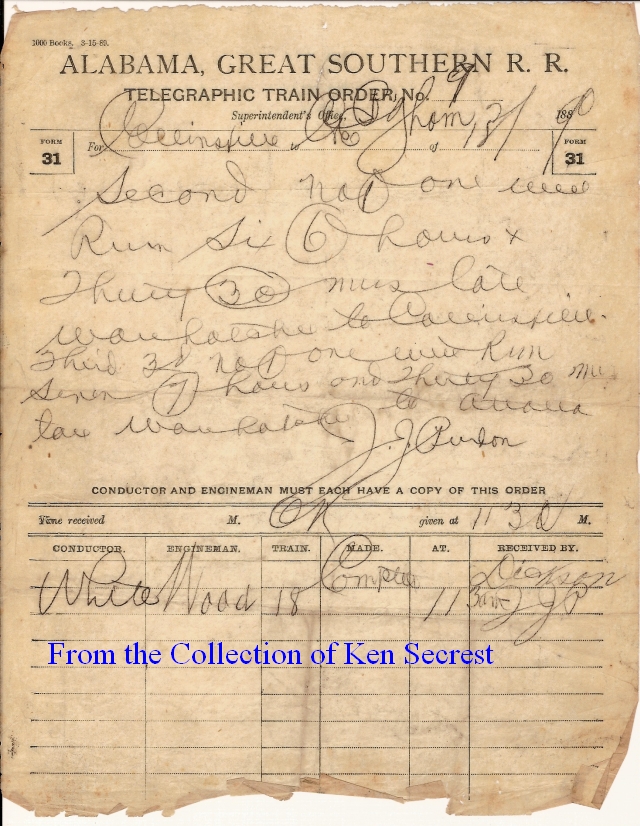 1000 Books, 3-15-89.
ALABAMA, GREAT SOUTHERN R. R.
TELEGRAPHIC TRAIN ORDER, No. 9
Superintendent's Office, 1890
FORM 31
For Collinsville to of
FORM 31
Second No 1 one will
Run Six 6 hours &
Thirty 30 mins late
Wauhatchie to Collinsville.
Third 3d No 1 one will Run
Seven 7 hours and Thirty 30 Mins
late Wauhatchie to Attalla
J. J. Purdon
CONDUCTOR AND ENGINEMAN MUST EACH HAVE A COPY OF THIS ORDER
Time received M. OK given at 1130 M.
CONDUCTOR. ENGINEMAN. TRAIN. MADE. AT. RECEIVED BY.
White Wood 18 Complete 11 Dickson
JJP
From the Collection of Ken Secrest